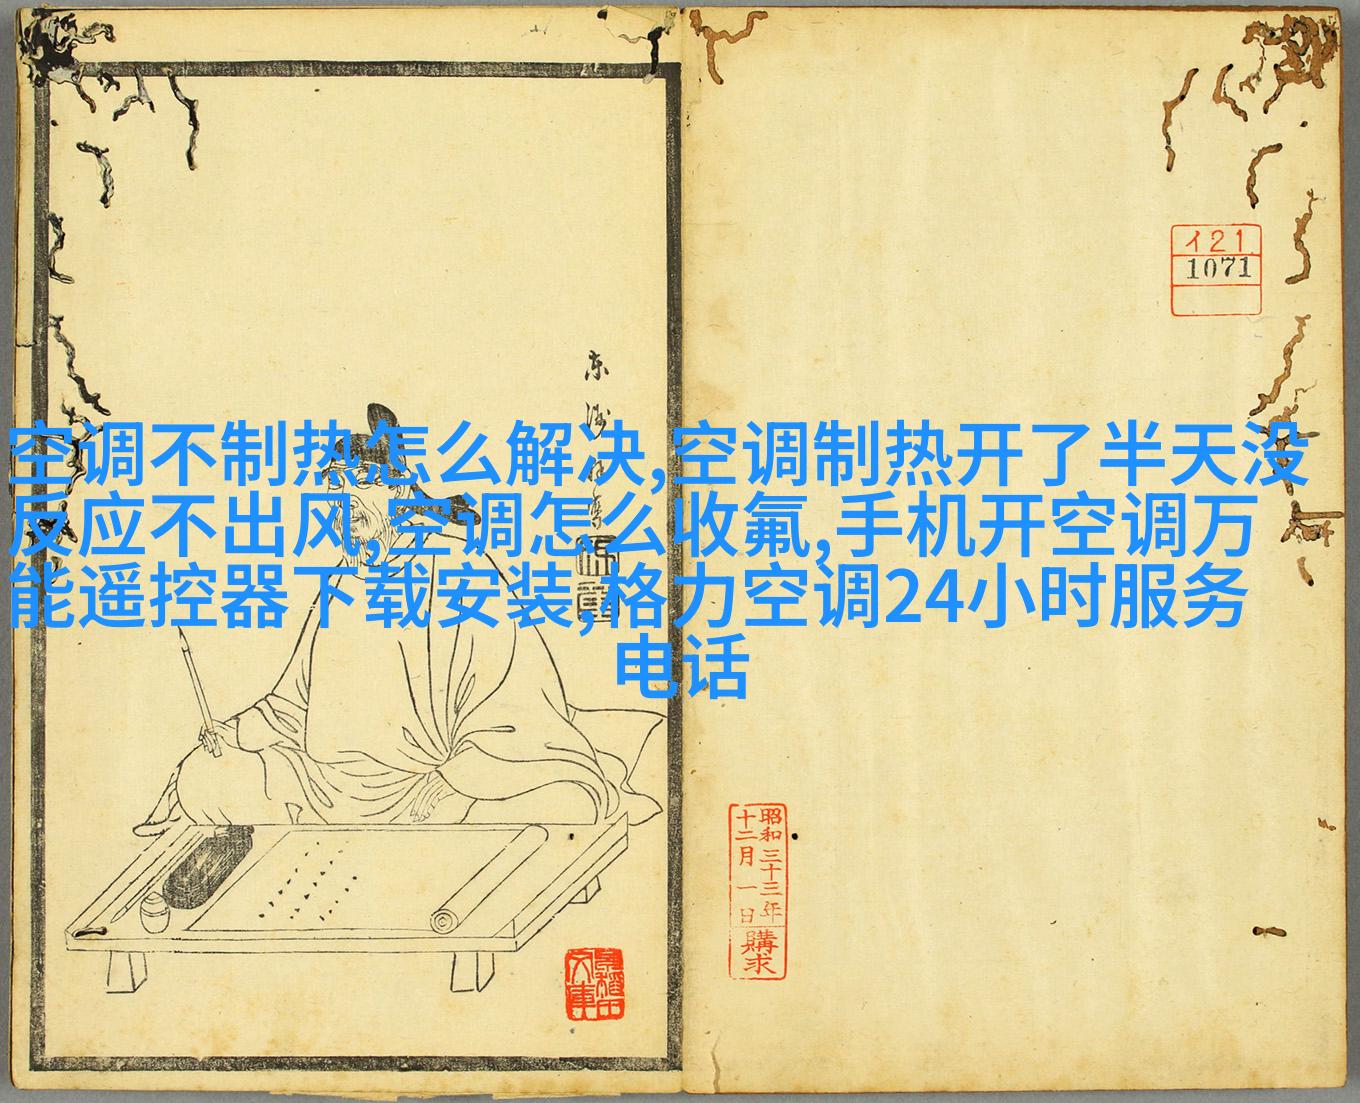 空调不制热怎么解决,空调制热开了半天没
反应不出风,空调怎么收氟,手机开空调万
能遥控器下载安装,格力空调24小时服务
电话
イ21
1071
昭和三十三年
十二月一日
購求